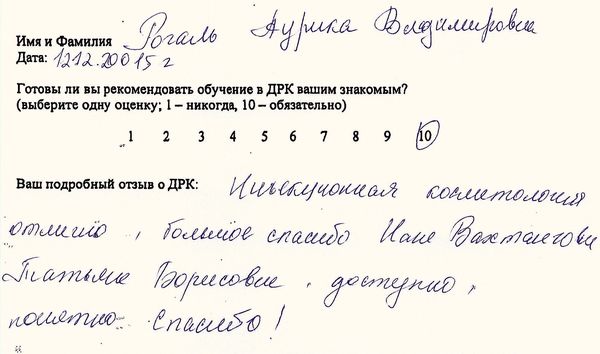 Имя и Фамилия Рогаль Аурика Владимировна
Дата: 1212.200015 г
Готовы ли вы рекомендовать обучение в ДРК вашим знакомым?
(выберите одну оценку; 1 – никогда, 10 – обязательно)
1 2 3 4 5 6 7 8 9 10
Ваш подробный отзыв о ДРК: Инъекционная косметология
отлично, большое спасибо Нане Вахтанговне
Татьяне Борисовне, доступно,
понятно. Спасибо!